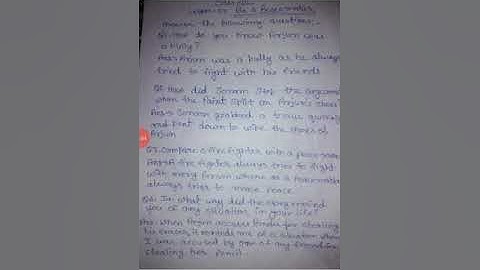 Be a Peacemaker
Answer the following questions:-
Q1. How do you know Anjum was
a bully?
Ans: Anjum was a bully as he always
tried to fight with his friends
Q2. How did Sonam stop the argument
when the paint spilt on Anjum's shoes?
Ans: Sonam grabbed a tissue quickly
and bent down to wipe the shoes of
Anjum
Q3. Compare a fire fighter with a peace maker
Ans: A fire fighter always tries to fight
with every person where as a peacemaker
always tries to make peace.
Q4: In what way did the story remind
you of any situation in your life?
Ans: When accuses for stealing
his eraser, it reminds me of a situation when
I was accused by one of my friend for
stealing her pencil.